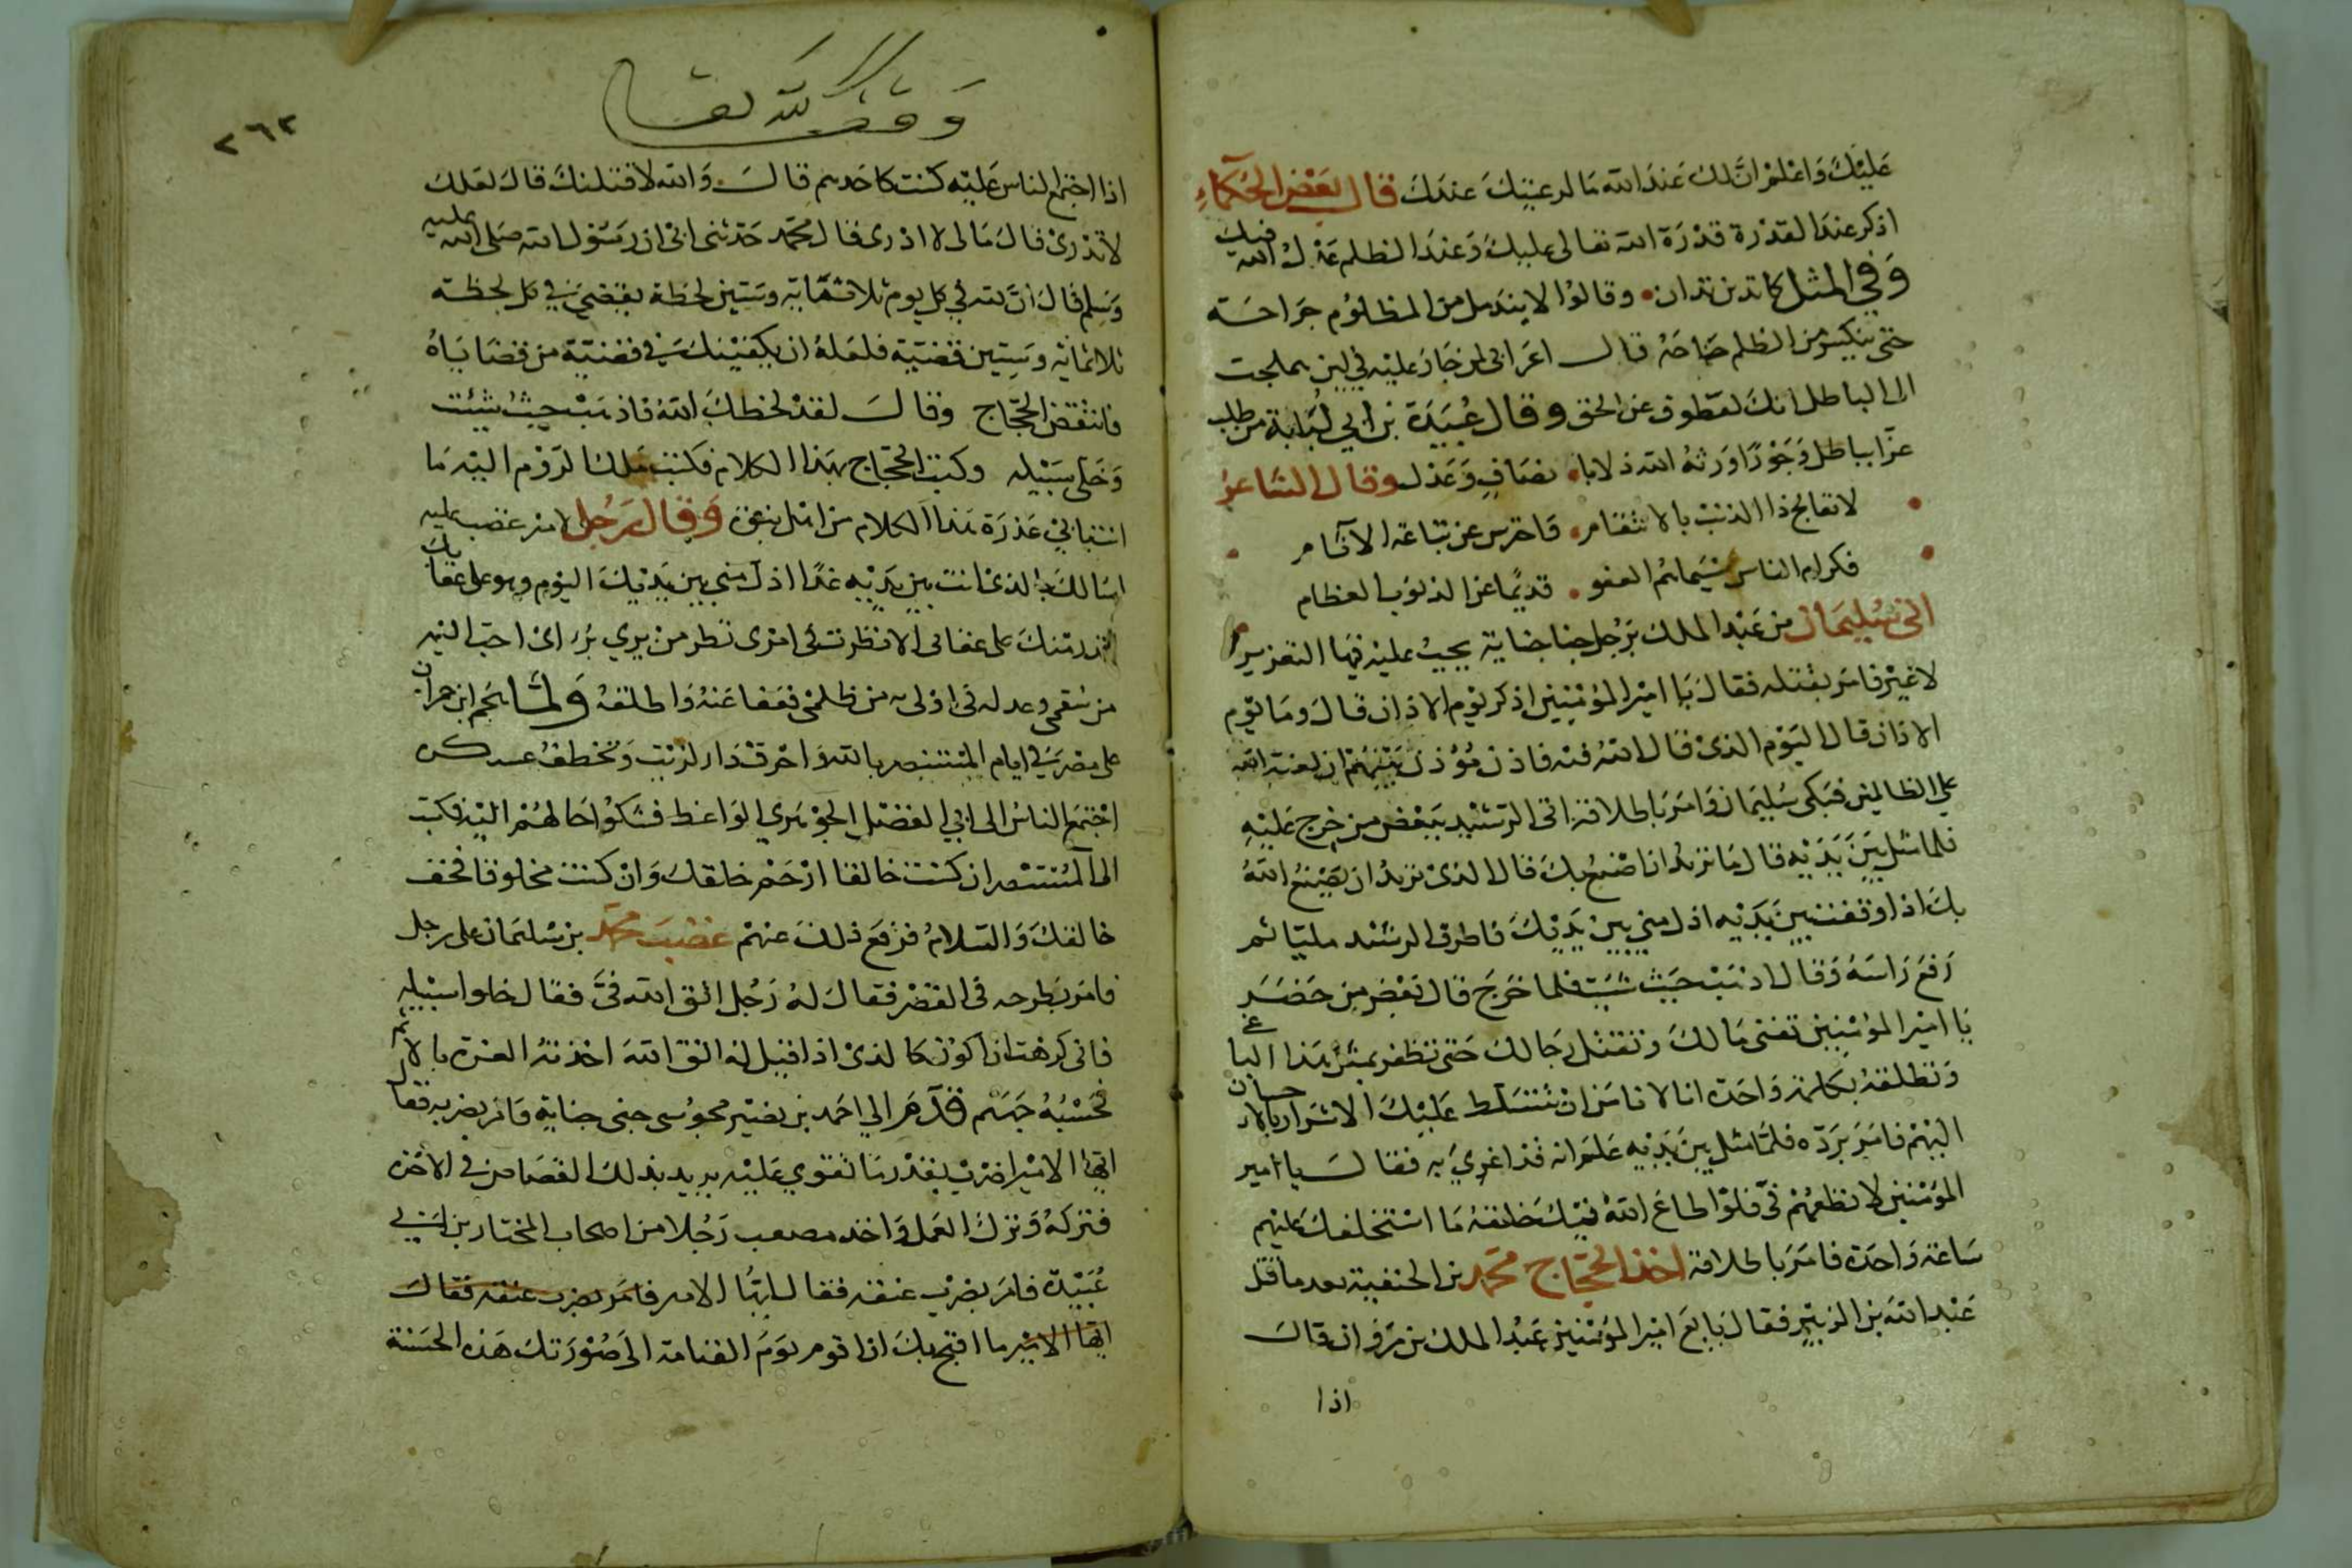 عليك واعلم ان لك عند الله ما لرعيتك عندك قال بعض الحكماء
اذكر عند القدرة قدرة الله تعالى عليك وعند الظلم عدل الله فيك
وفي المثل كما تدين تدان وقالوا لا يندمل من المظلوم جراحة
حتى ينكسر من الظلم جناحه قال اعرابي لمن جار عليه في لين هملجت
الى الباطل انك لعطوف عن الحق وقال عبيدة بن ابي لبابة من طلب
عزا بباطل وجورا اورثه الله ذلا بانصاف وعدل وقال الشاعر
لا تقابح ذا الذنب بالانتقام واحترس عن تباعة الآثام
فكرام الناس شيماهم العفو قديما عن الذنوب العظام
اتى سليمان بن عبد الملك برجل جنا جناية يجب عليه فيها التعزير
لا غير فامر بقتله فقال يا امير المؤمنين اذكر يوم الاذان قال وما يوم
الاذان قال اليوم الذي قال الله فيه فاذن مؤذن بينهم ان لعنة الله
على الظالمين فبكى سليمان وامر باطلاقه اتى الرشيد ببعض من خرج عليه
فلما مثل بين يديه قال ما تريد ان اصنع بك قال الذي تريد ان يصنع الله
بك اذا وقفت بين يديه اذل مني بين يديك فاطرق الرشيد مليا ثم
رفع راسه وقال اذهب حيث شيت فلما خرج قال بعض من حضر
يا امير المؤمنين تفنى مالك وتقتل رجالك حتى تظفر بمثل هذا الباغي
وتطلقه بكلمة واحدة انا لا نامن ان تتسلط عليك الاشرار بالاحسان
اليهم فامر برده فلما مثل بين يديه علم انه قد اغري به فقال يا امير
المؤمنين لا تطعهم في فلو اطاع الله فيك خلقه ما استخلفك عليهم
ساعة واحدة فامر باطلاقه اخذ الحجاج محمد بن الحنفية بعد ما قتل
عبد الله بن الزبير فقال بايع امير المؤمنين عبد الملك بن مروان قال
اذا
وقف لله تعالى
٢٦٢
اذا اجتمع الناس عليه كنت كاحدهم قال والله لاقتلنك قال لعلك
لا تدري قال مالي لا ادري قال محمد حدثني ابي ان رسول الله صلى الله عليه
وسلم قال ان لله في كل يوم ثلاثمائة وستين لحظة يقضي في كل لحظة
ثلاثمائة وستين قضية فلعله ان يكفينك في قضية من قضاياه
فانتقض الحجاج وقال لقد لحظك الله فاذهب حيث شئت
وخلى سبيله وكتب الحجاج بهذا الكلام فكتب ملك الروم اليه ما
هذا الكلام من وقال رجل لامير غضب عليه
اسالك بالذي انت بين يديه غدا اذل مني بين يديك اليوم وهو على عقابك
اقدر منك على عقابي الا نظرت في امري نظر من يري برء اي احب اليه
من سقمي وعدله في اولى به من ظلمي فعفا عنه واطلقه ولما
على مصر في ايام المستنصر بالله واحرق دار الزيت وتخطف عسكره
اجتمع الناس الى ابي الفضل الجوهري الواعظ فشكوا حالهم اليه فكتب
الى المستنصر ان كنت خالقا ارحم خلقك وان كنت مخلوقا فخف
خالقك والسلام فرفع ذلك عنهم غضب محمد بن سليمان على رجل
فامر بطرحه في القصر فقال له رجل اتق الله في فقال خلوا سبيله
فاني كرهت ان اكون كالذي اذا قيل له اتق الله اخذته العزة بالاثم
فحسبه جهنم قدم الي احمد بن نصير مجوسي جنى جناية فامر بضربه فقال
ايها الامير اضرب بقدر ما تقوي عليه يريد بذلك القصاص في الاخرة
فتركه وترك العمل واخذ مصعب رجلا من اصحاب المختار بن ابي
عبيدة فامر بضرب عنقه فقال ايها الامير فامر بضرب عنقه فقال
ايها الامير ما اقبح بك ان اقوم يوم القيامة الى صورتك هذه الحسنة